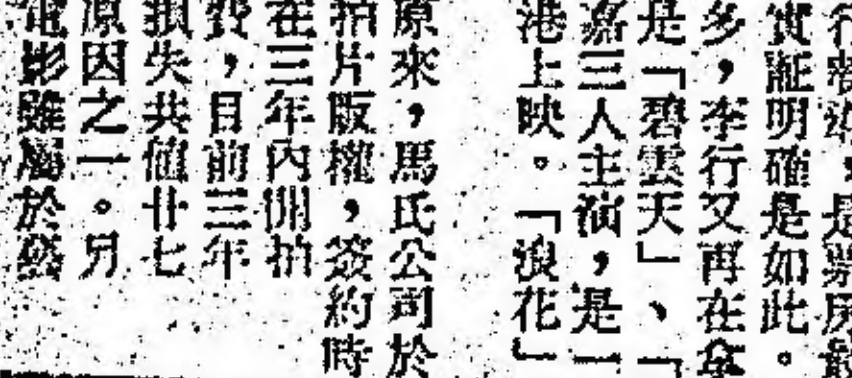 實証明確是如此。
多，李行又再在拿
是「碧雲天」、「
嘉三人主演，是一
港上映。「浪花」
原來，馬氏公司於
拍片版權，簽約時
在三年內開拍
費，目前三年
損失共值廿七
原因之一。另
電影雖屬於藝